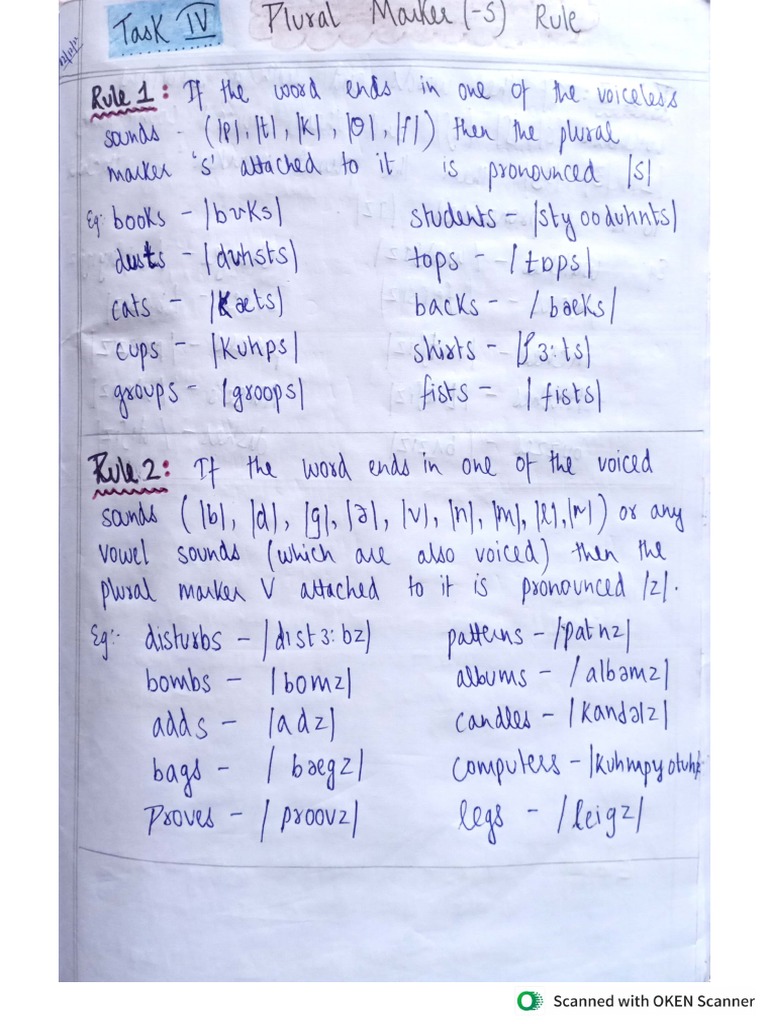 Task IV Plural Marker (-s) Rule
Rule 1: If the word ends in one of the voiceless
sounds - (|p|, |t|, |k|, |θ|, |f|) then the plural
marker 's' attached to it is pronounced |s|
Eg: books - |bʊks| students - |styooduhnts|
dusts - |duhsts| tops - |tɒps|
cats - |kaets| backs - /baeks|
cups - |kuhps| shirts - |ʃɜ:ts|
groups - |groops| fists - |fists|
Rule 2: If the word ends in one of the voiced
sounds (|b|, |d|, |g|, |ə|, |v|, |n|, |m|, |l|, |r|) or any
vowel sounds (which are also voiced) then the
plural marker V attached to it is pronounced |z|.
Eg:- disturbs - |dıstɜ:bz| patterns - |patnz|
bombs - |bomz| albums - /albəmz|
adds - |adz| candles - |kandəlz|
bags - | baegz| computers - |kuhmpyotuhz
Proves - | proovz| legs - /leigz|
Scanned with OKEN Scanner